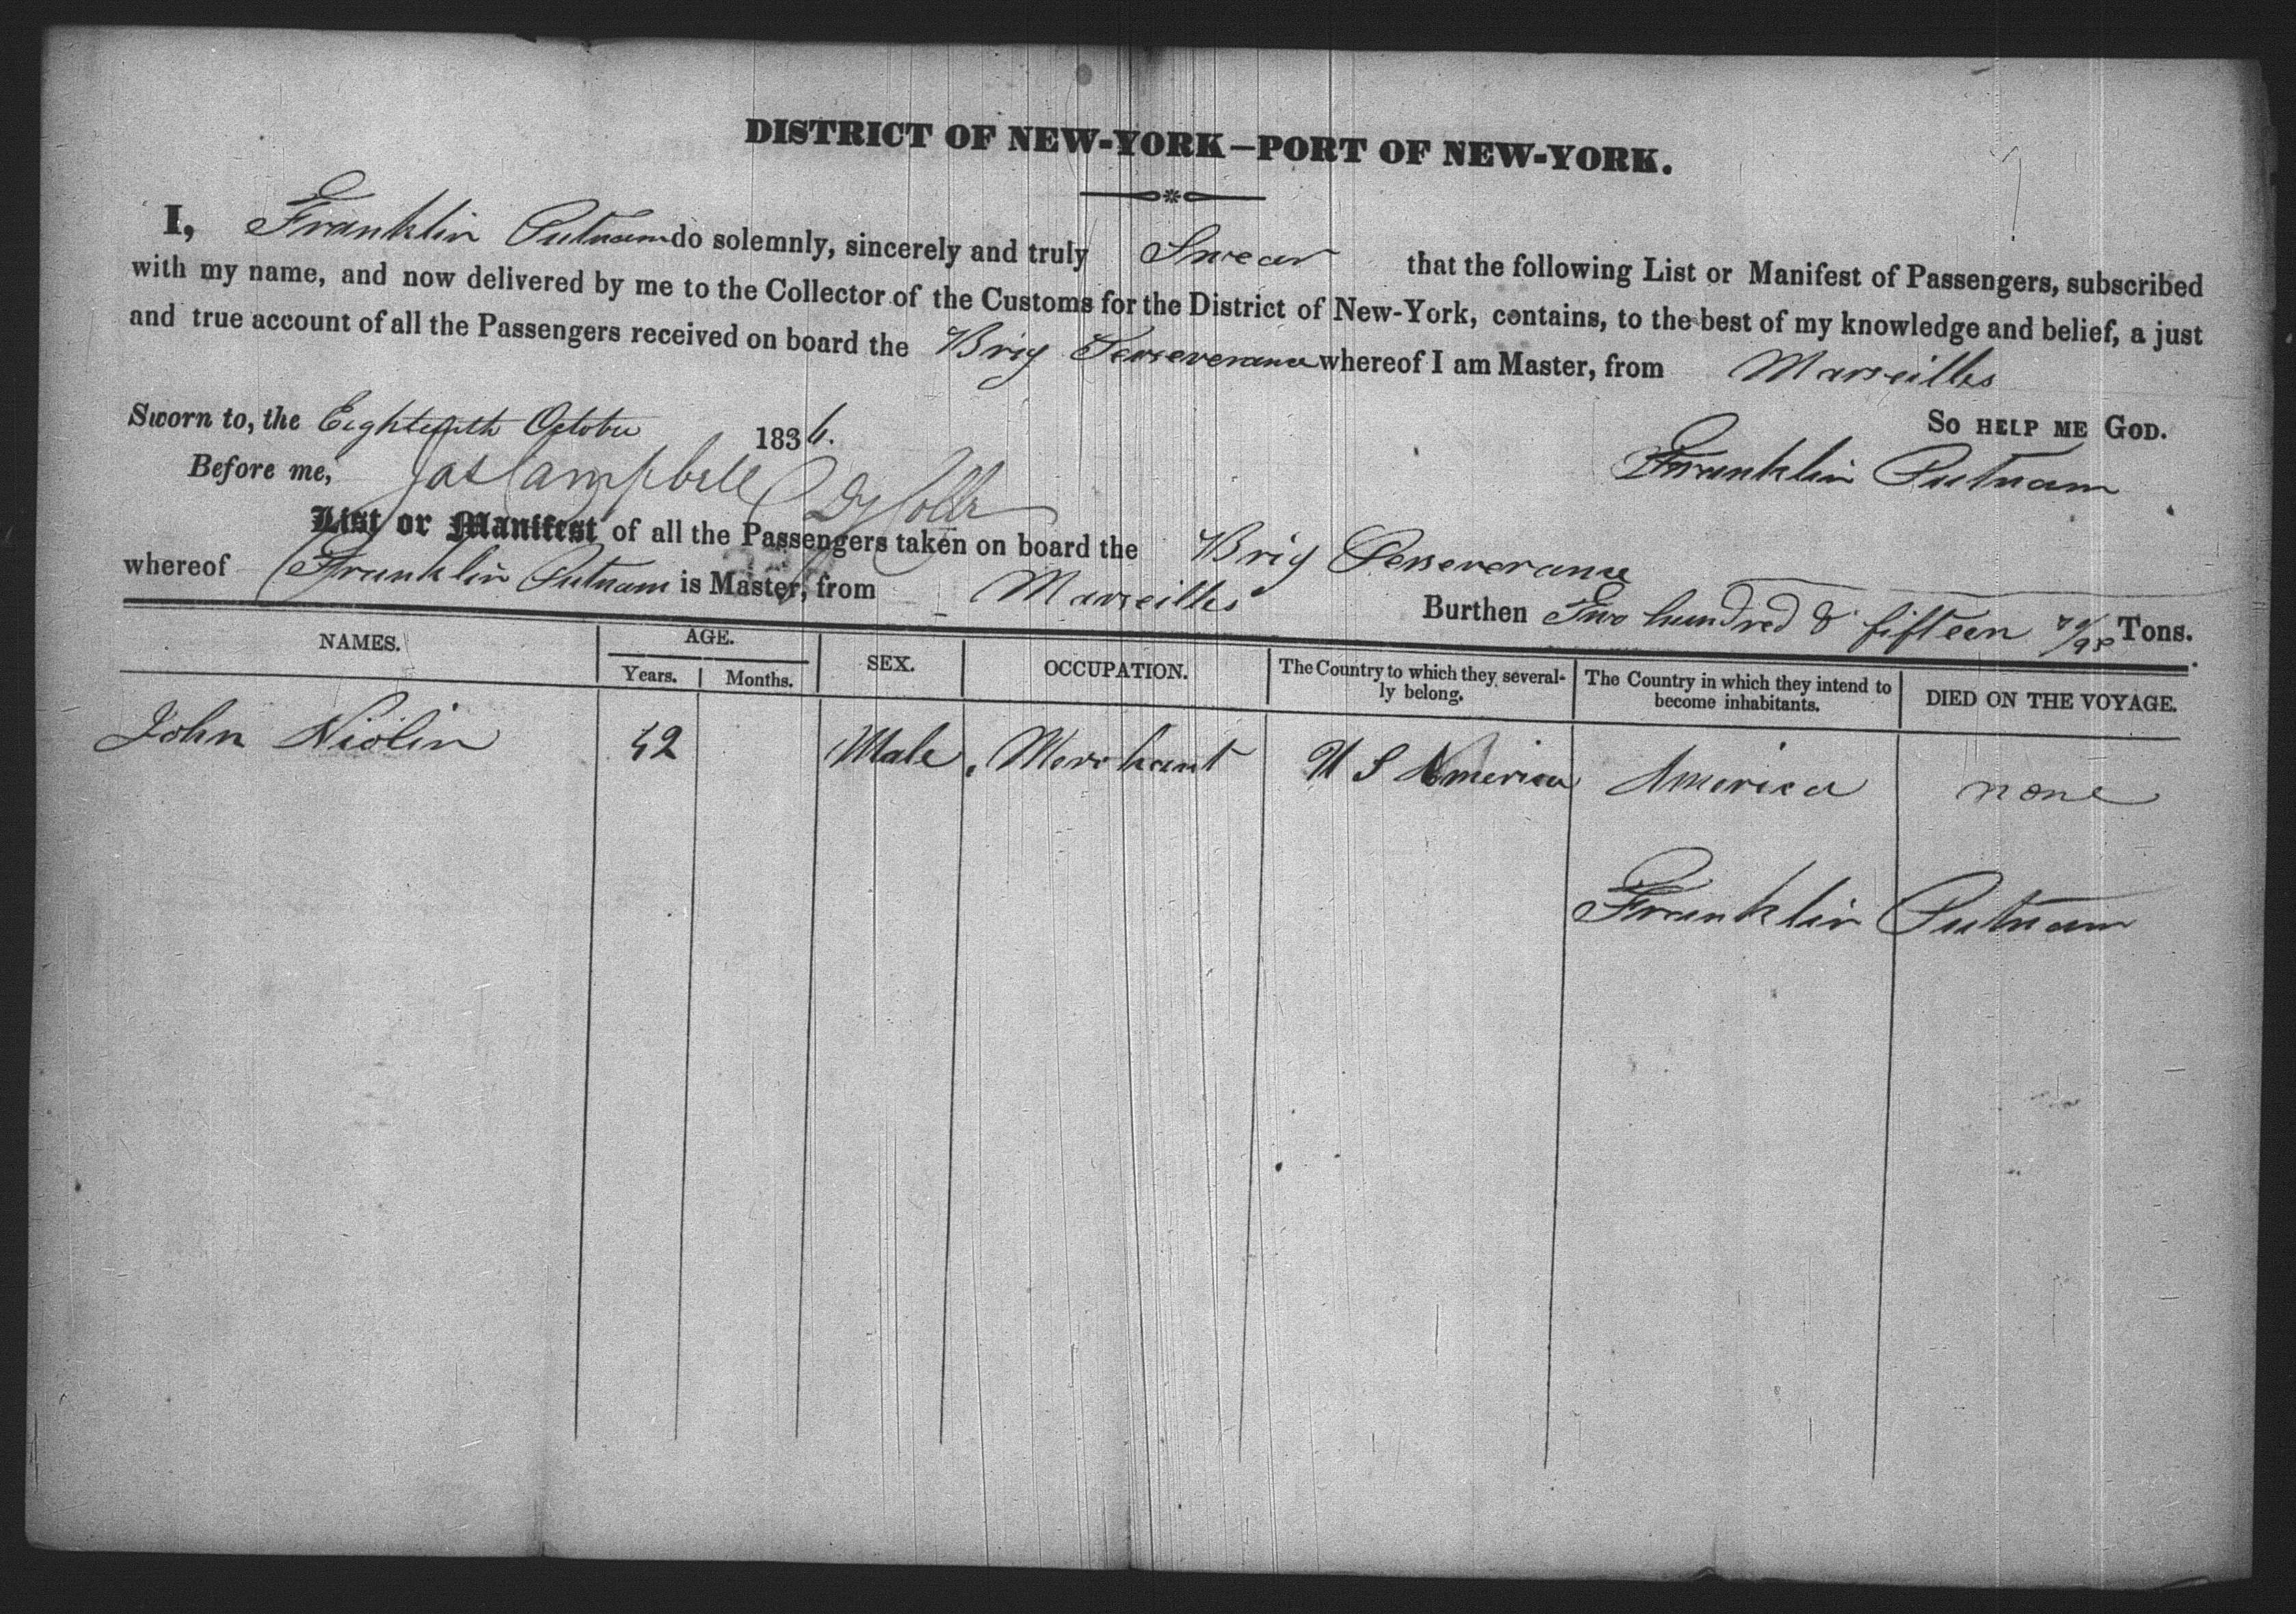 DISTRICT OF NEW-YORK—PORT OF NEW-YORK.
I, Franklin Putnam do solemnly, sincerely and truly Swear that the following List or Manifest of Passengers, subscribed
with my name, and now delivered by me to the Collector of the Customs for the District of New-York, contains, to the best of my knowledge and belief, a just
and true account of all the Passengers received on board the Brig Perseverance whereof I am Master, from Marseilles
So HELP ME GOD.
Sworn to, the Eighteenth October 1836.
Franklin Putnam
Before me, Jas Campbell Dy Collr
List or Manifest of all the Passengers taken on board the Brig Perseverance
whereof Franklin Putnam is Master, from Marseilles Burthen Two hundred & fifteen /95 Tons.
NAMES. AGE. SEX. OCCUPATION. The Country to which they several- The Country in which they intend to DIED ON THE VOYAGE.
Years. Months. ly belong. become inhabitants.
John 42 Male Merchant U S America America none
Franklin Putnam